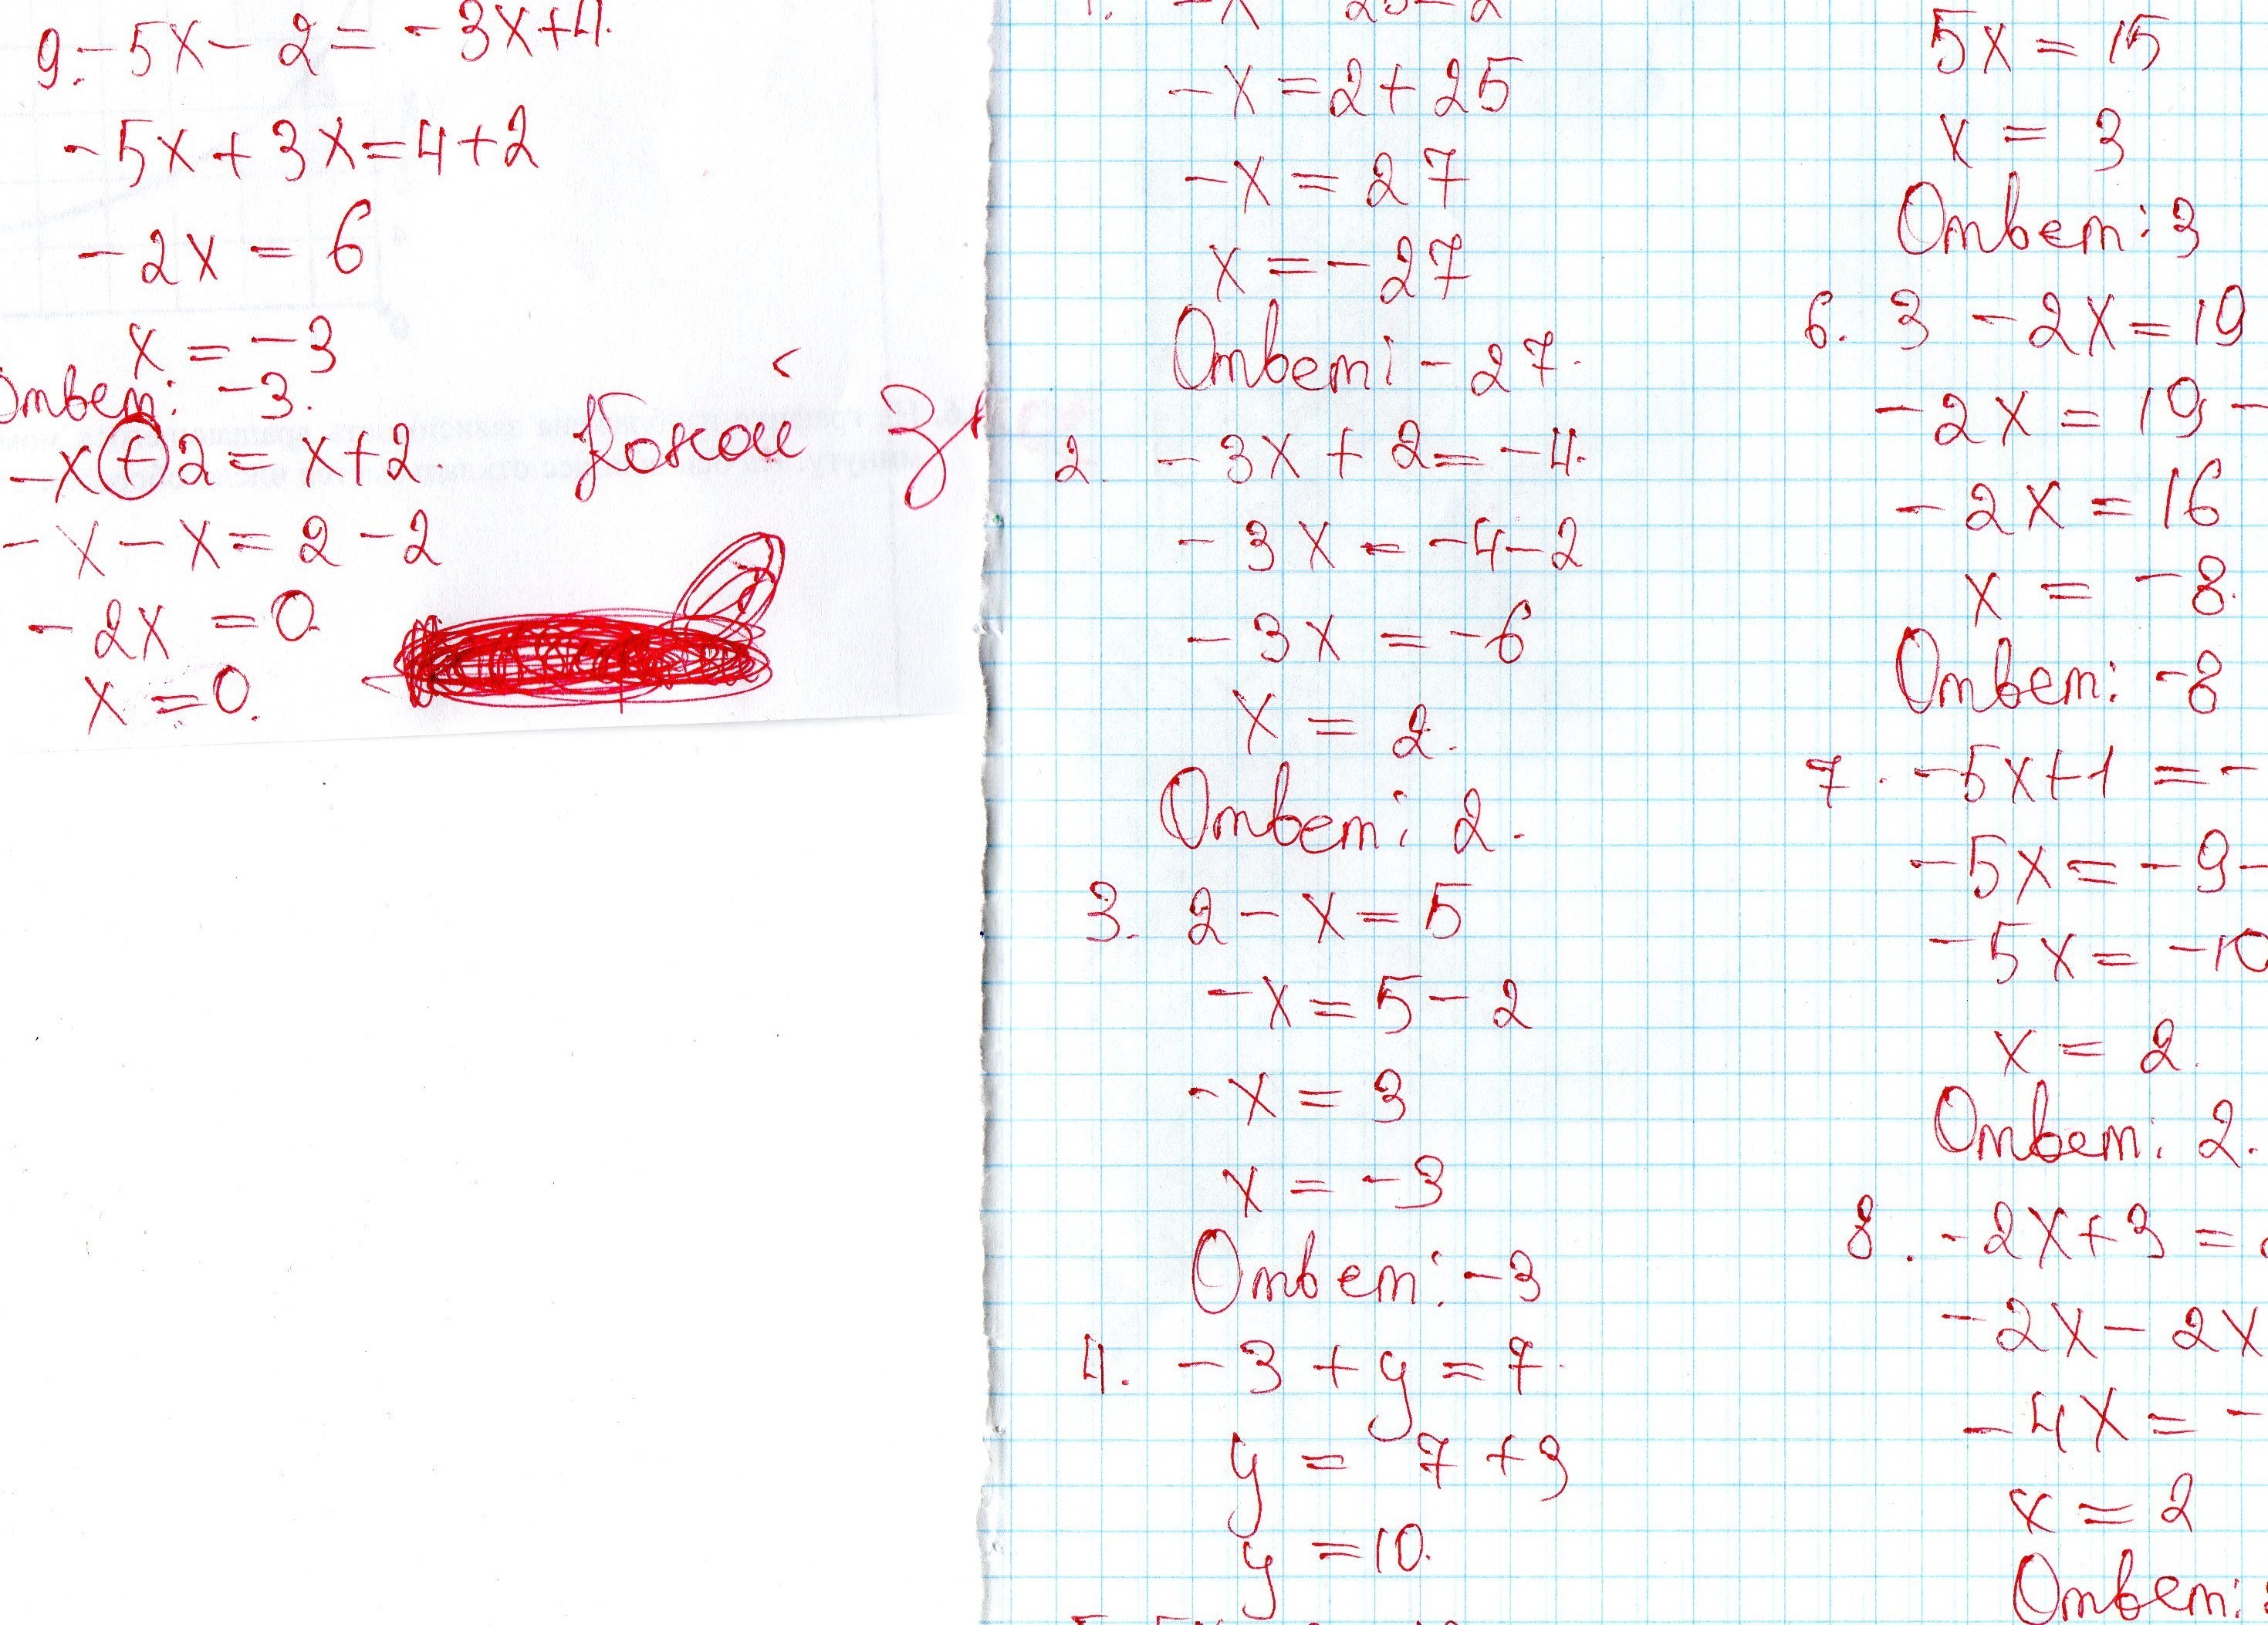 9. -5x - 2 = -3x+4.
-5x + 3x = 4+2
-2x = 6
x = -3
Ответ: -3.
-x + 2 = x+2
-x - x = 2 - 2
-2x = 0
x = 0.
Какой
-x = 2 + 25
-x = 27
x = -27
Ответ: -27.
2. -3x + 2 = -4.
-3x = -4-2
-3x = -6
x = 2.
Ответ: 2.
3. 2 - x = 5
-x = 5 - 2
-x = 3
x = -3
Ответ: -3
4. -3 + y = 7.
y = 7 + 3
y = 10.
5x = 15
x = 3
Ответ: 3
6. 3 - 2x = 19
-2x = 19 -
-2x = 16
x = -8.
Ответ: -8
7. -5x+1 = -
-5x = -9 -
-5x = -10
x = 2.
Ответ: 2.
8. -2x+3 =
-2x - 2x
-4x = -
x = 2
Ответ: